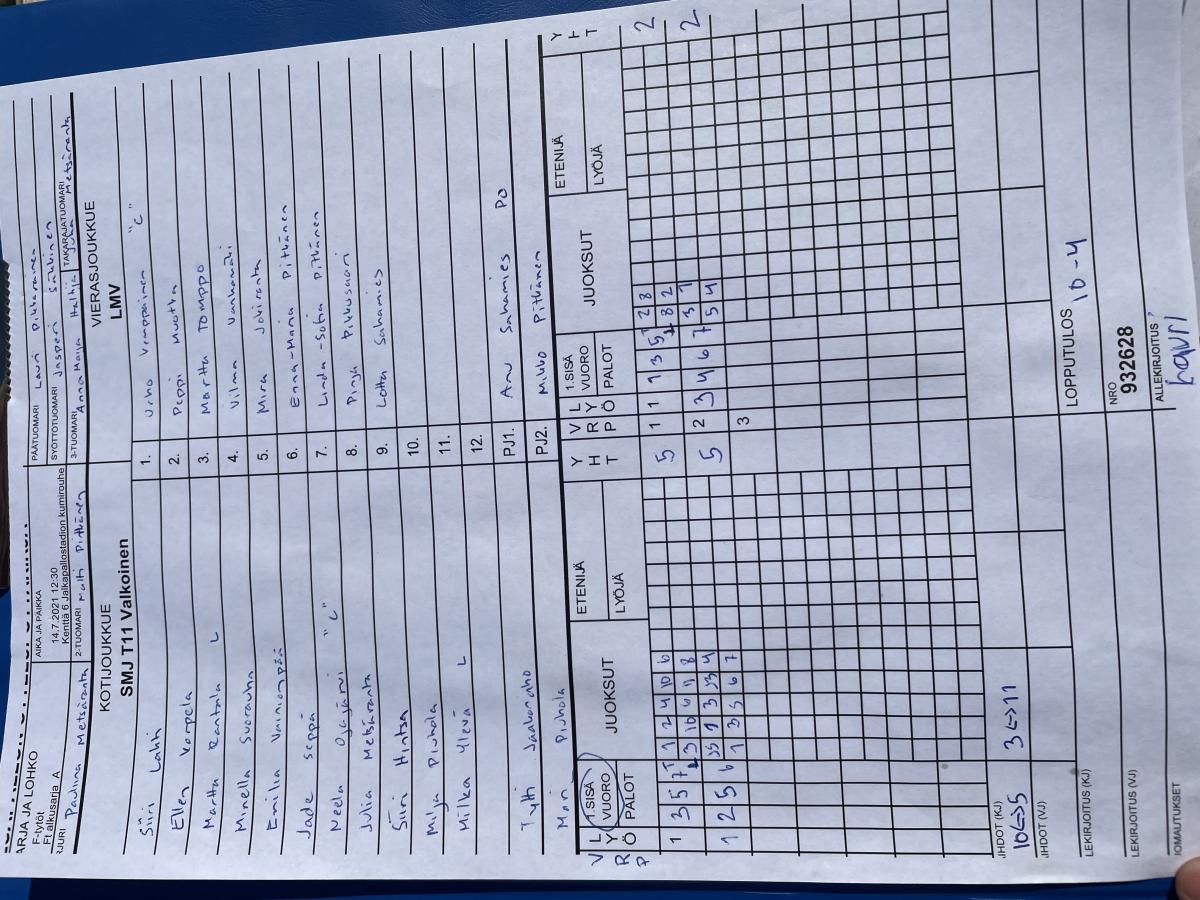 ARJA JA LOHKO
F-tytöt
Ft alkusarja A
AIKA JA PAIKKA
14.7.2021 12:30
Kenttä 6 Jalkapallostadion kumirouhe
PÄÄTUOMARI Lauri Pikkarainen
SYÖTTÖTUOMARI Jasperi
TAKARAJATUOMARI Juha Metsäranta
Pauliina Metsäranta
2-TUOMARI Matti Pitkänen
3-TUOMARI Anna Maija
KOTIJOUKKUE
SMJ T11 Valkoinen
VIERASJOUKKUE
LMV
Siiri Lahti 1. Urho "C"
Ellen Korpela 2. Peppi Muotka
Martta Rantala L 3. Martta Tomppo
Minella Suorauha 4. Vilma Vanhamäki
Emilia Vainionpää 5. Mira Jokiranta
Jade Seppä 6. Enna-Maria Pitkänen
Neela Ojajärvi "C" 7. Linda-Sofia Pitkänen
Julia Metsäranta 8. Pinja Pitkusaari
Siiri Hintsa 9. Lotta Sahamies
Milja Piuhola 10.
Milka Ylevä L 11.
12.
Tytti PJ1. Anu Sahamies PO
Mari Piuhola PJ2. Mikko Pitkänen
V R P L Y Ö 1.SISÄ VUORO PALOT JUOKSUT ETENIJÄ LYÖJÄ Y H T V R P L Y Ö 1.SISÄ VUORO PALOT JUOKSUT ETENIJÄ LYÖJÄ Y H T
1 3 5 7 1 2 4 10 6 5 1 1 1 3 5 2 8 2
3 10 6 11 8 8 2
1 2 5 6 1 3 4 5 2 3 4 6 7 3 1 2
1 3 5 6 7 5 4
3
IHDOT (KJ)
10<->5 3<->11
IHDOT (VJ)
LOPPUTULOS 10-4
LEKIRJOITUS (KJ)
LEKIRJOITUS (VJ)
NRO
932628
IOMAUTUKSET
ALLEKIRJOITUS
Lauri